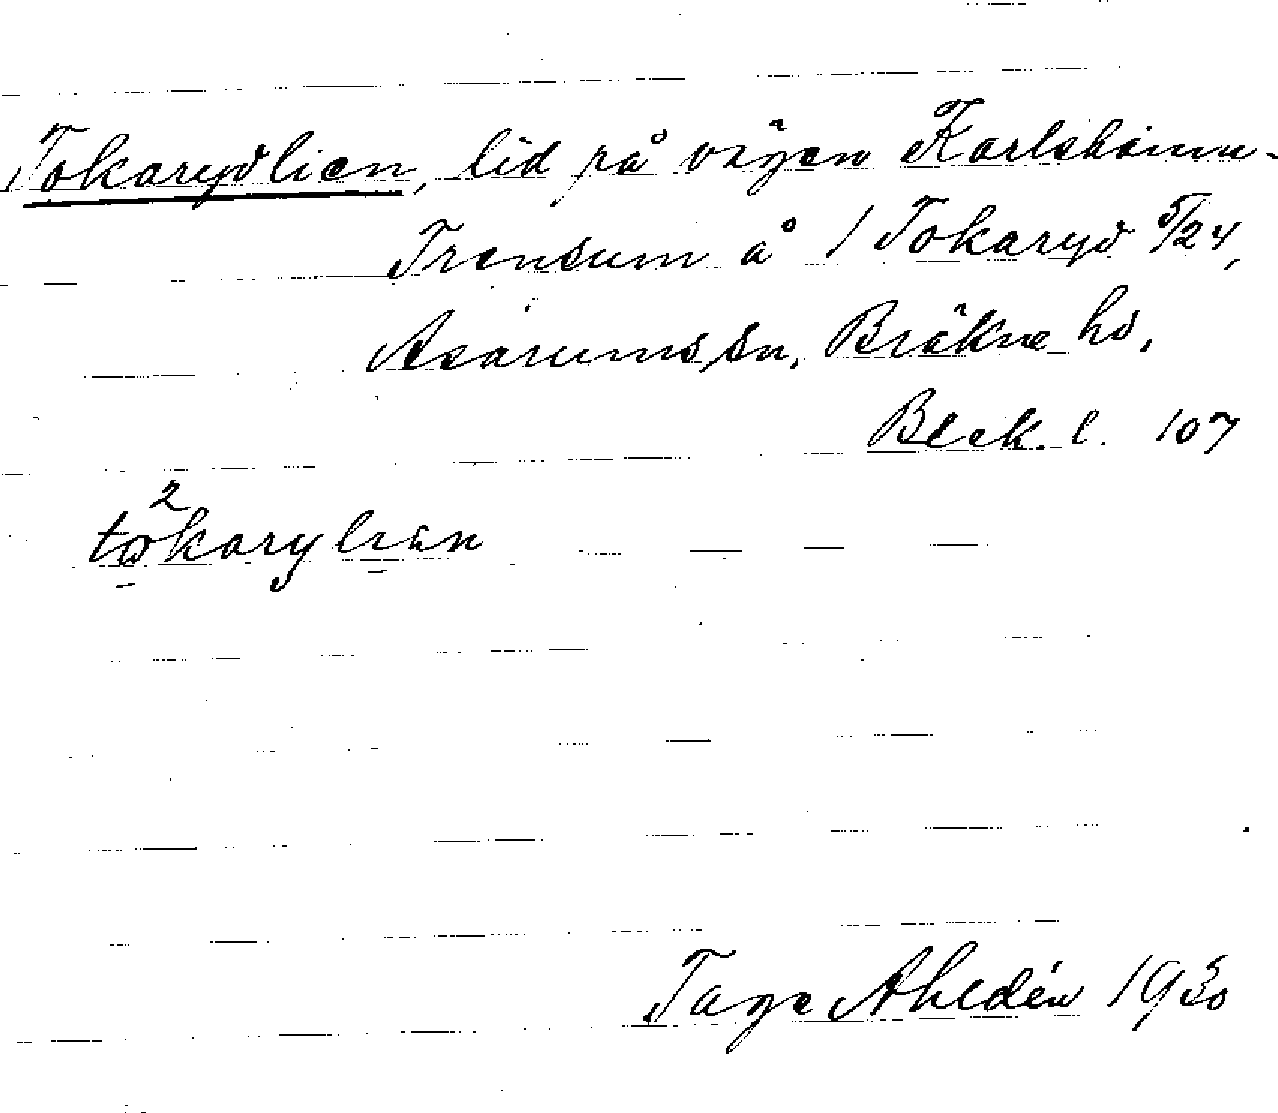 Tokarydlien, lid på vägen Karlshamn-
Trensum å 1 Tokaryd 5/24,
Asarums sn, Bräkne hd,
Blek. l. 107
tökarylian
Tage Ahldén 1930